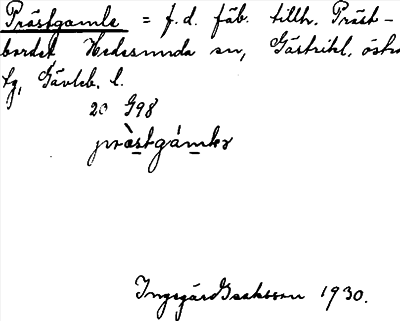 Prästgamle = f.d. fäb. tillh. Präst-
bordet Hedesunda sn, Gästrikl. östra
tg, Gävleb. l.
20 G98
pràstgámlər
Ingegärd Isaksson 1930.